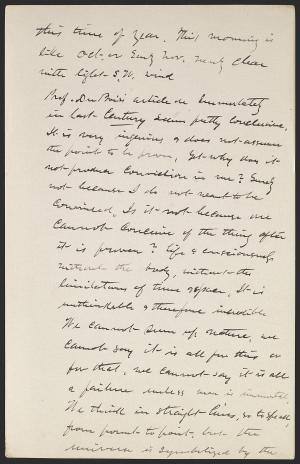 this time of year. This morning is
like Oct. or Early Nov. nearly clear
with light S.W. wind
Prof. Du Bois' article on Immortality
in last Century seems pretty conclusive.
It is very ingenious & does not assume
the point to be proven, yet why does it
not produce conviction in me? Surely
not because I do not want to be
convinced. Is it not because we
cannot conceive of the thing after
it is proven? life & consciousness
without the body, without the
limitations of time & space, It is
unthinkable & therefore incredible
We cannot sum up nature, we
cannot say it is all for this or
for that, we cannot say it is all
a failure unless man is immortal.
We think in straight lines, so to speak,
from point to point, but the
universe is symbolized by the